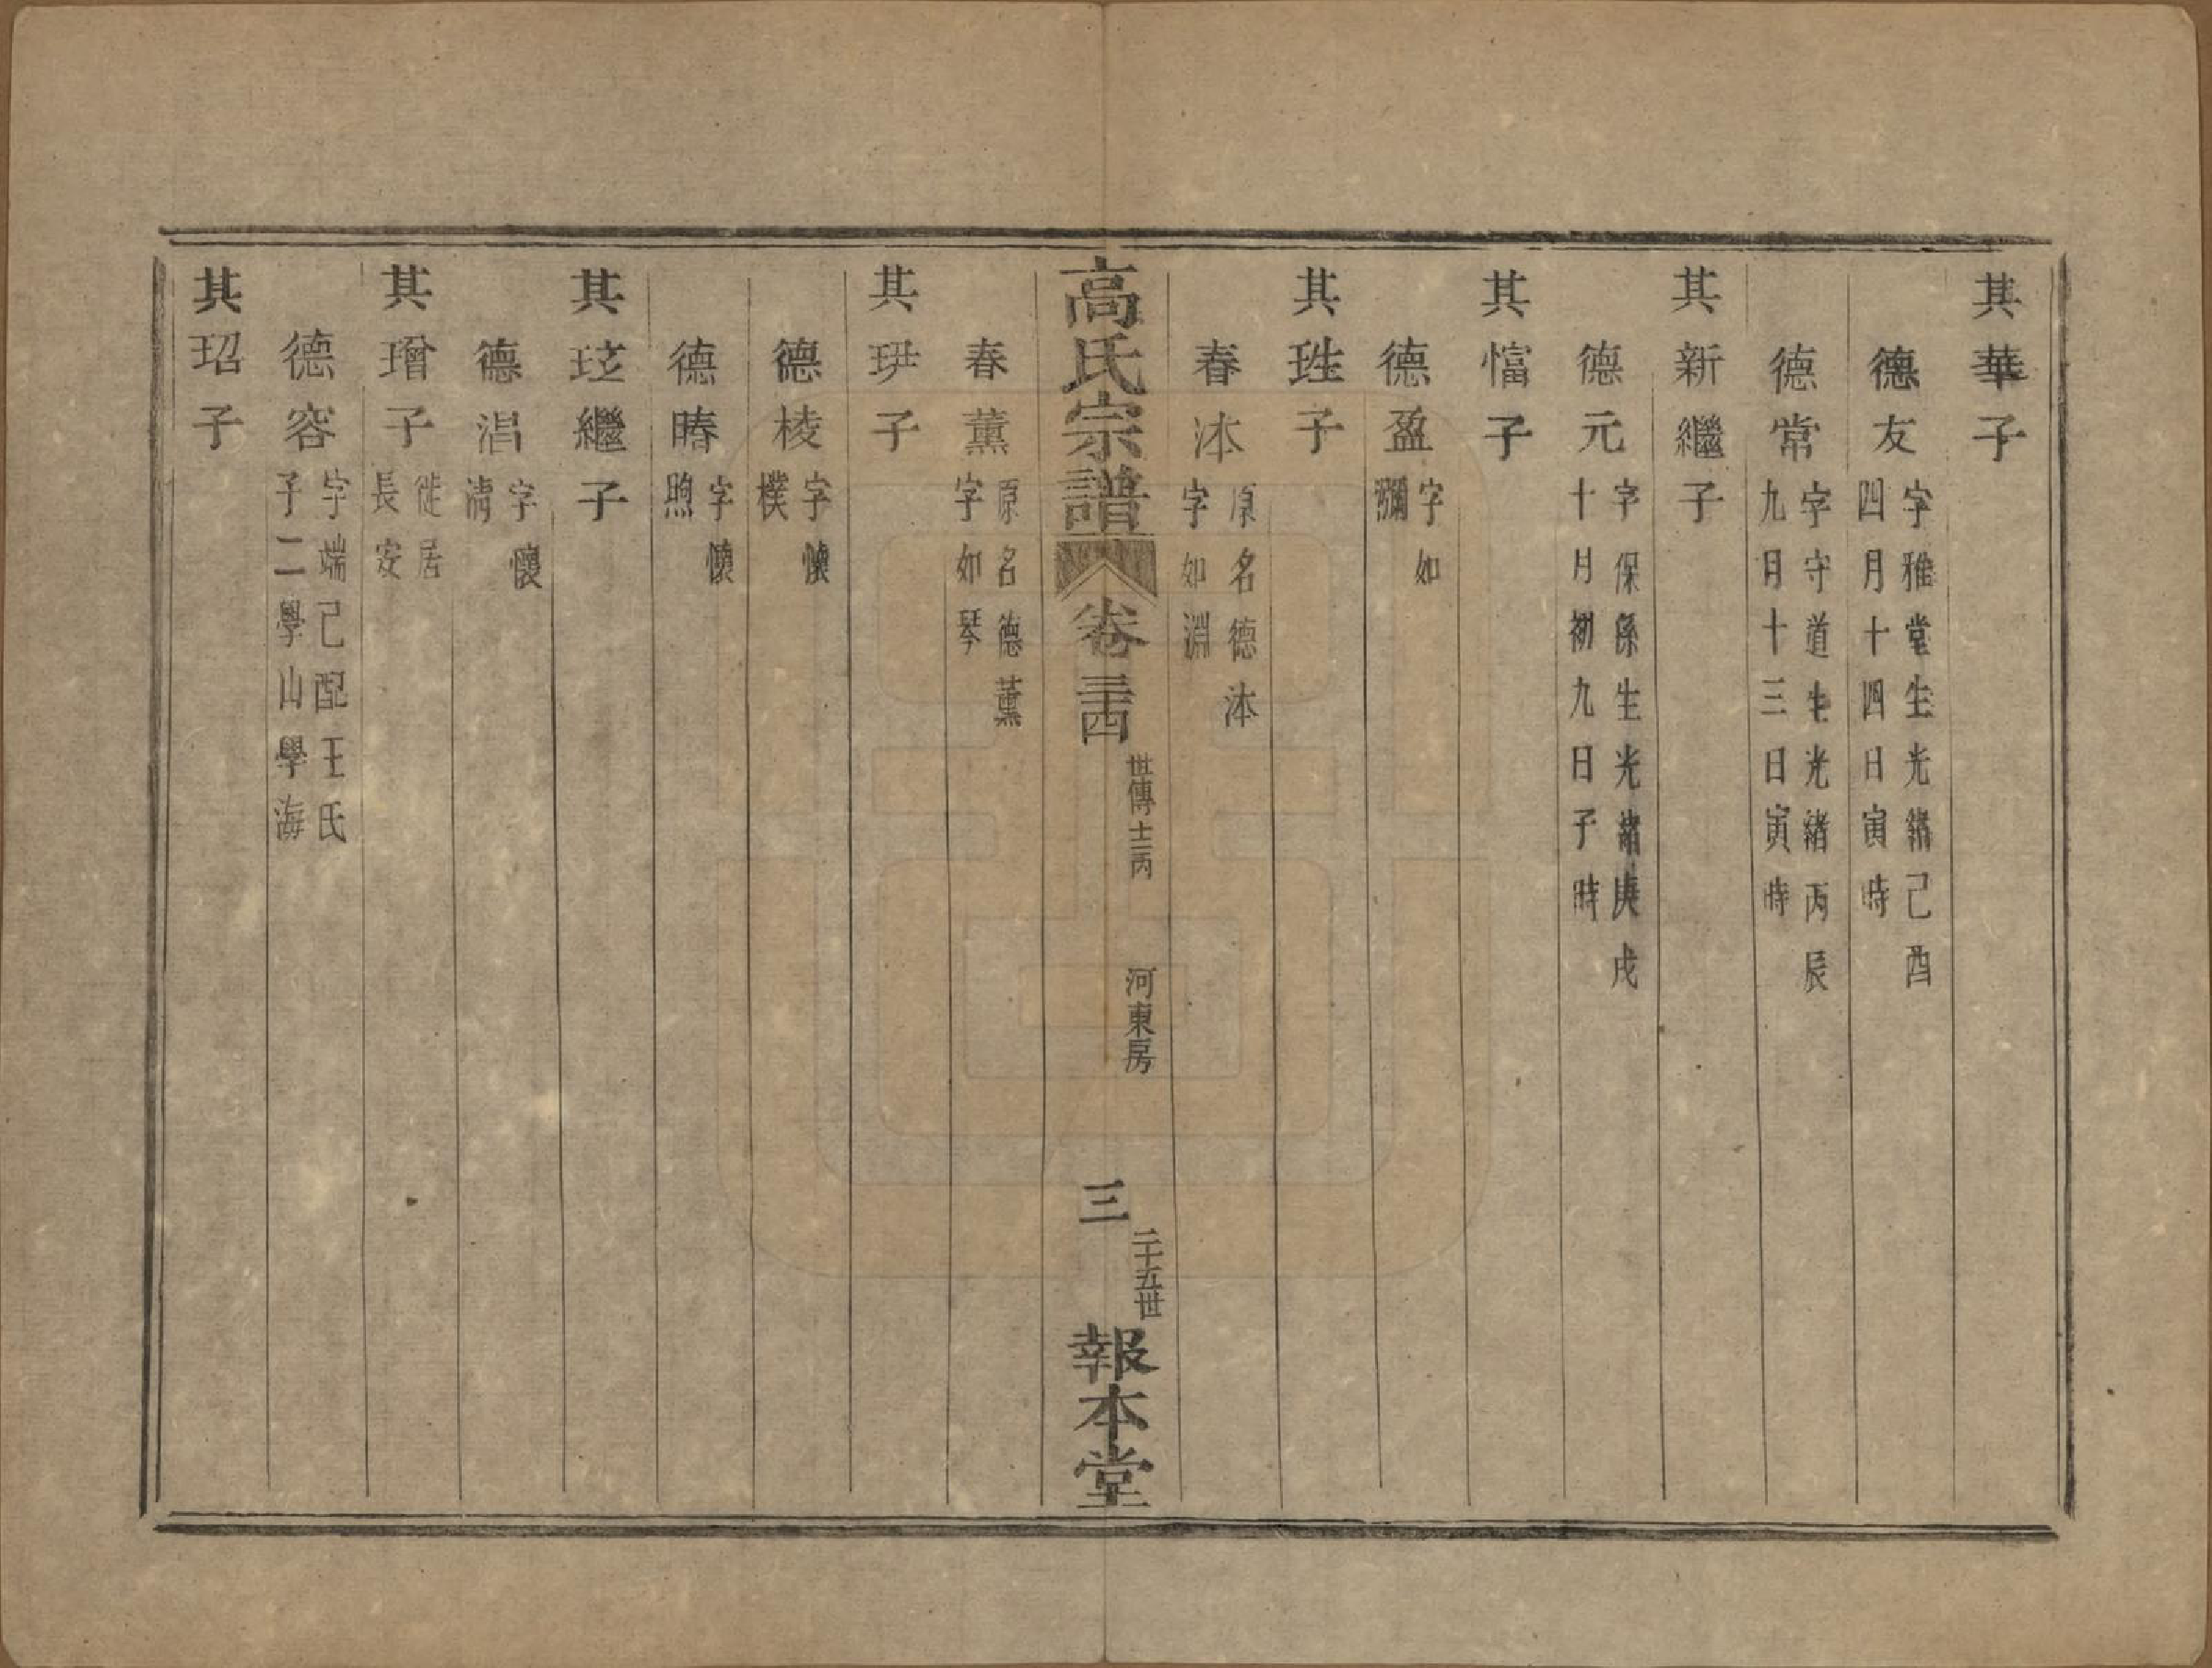 其華子
德友字雅堂生光緒己酉
四月十四日寅時
德常字守道生光緒丙辰
九月十三日寅時
其新繼子
德元字保係生光緒庚戌
十月初九日子時
其愊子
德盈字如
瀰
其珄子
春沐原名德沐
字如淵
高氏宗譜 卷三四 世傳 河東房 三 二十五世 報本堂
春薰原名德薰
字如琴
其珙子
德棱字懷
樸
德暙字懷
煦
其玹繼子
德淐字懷
清
其璔子徙居
長安
德容字端己配王氏
子二學山學海
其玿子